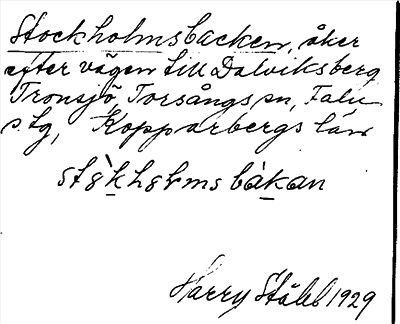 Stockholmsbacken, åker
efter vägen till Dalviksberg
Tronsjö, Torsångs sn, Falu
s.lg, Kopparbergs län
Harry Ståhl 1929